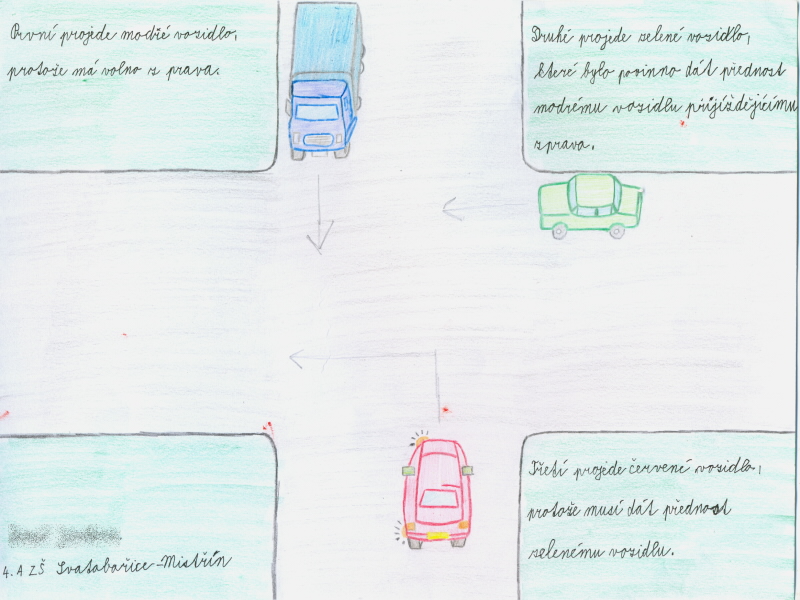 První projede modré vozidlo,
protože má volno z prava.
Druhé projede selené vozidlo,
které bylo povinno dát přednost
modrému vozidlu přijíždějícímu
zprava.
Třetí projede červené vozidlo,
protože musí dát přednost
selenému vozidlu.
4. A ZŠ Svatobořice-Mistřín